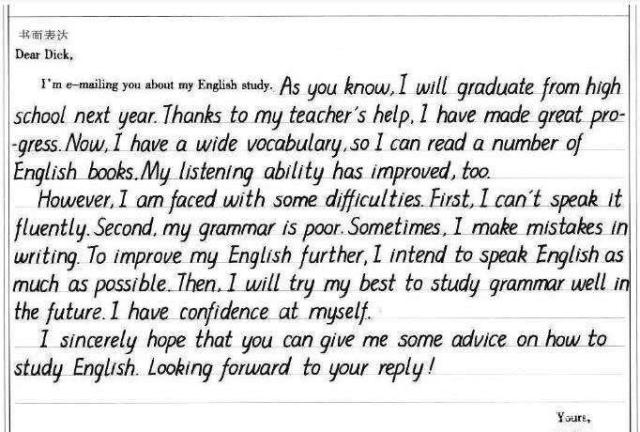 书面表达
Dear Dick,
I'm e-mailing you about my English study. As you know, I will graduate from high
school next year. Thanks to my teacher's help, I have made great pro-
-gress. Now, I have a wide vocabulary, so I can read a number of
English books. My listening ability has improved, too.
However, I am faced with some difficulties. First, I can't speak it
fluently. Second, my grammar is poor. Sometimes, I make mistakes in
writing. To improve my English further, I intend to speak English as
much as possible. Then, I will try my best to study grammar well in
the future. I have confidence at myself.
I sincerely hope that you can give me some advice on how to
study English. Looking forward to your reply!
Yours,